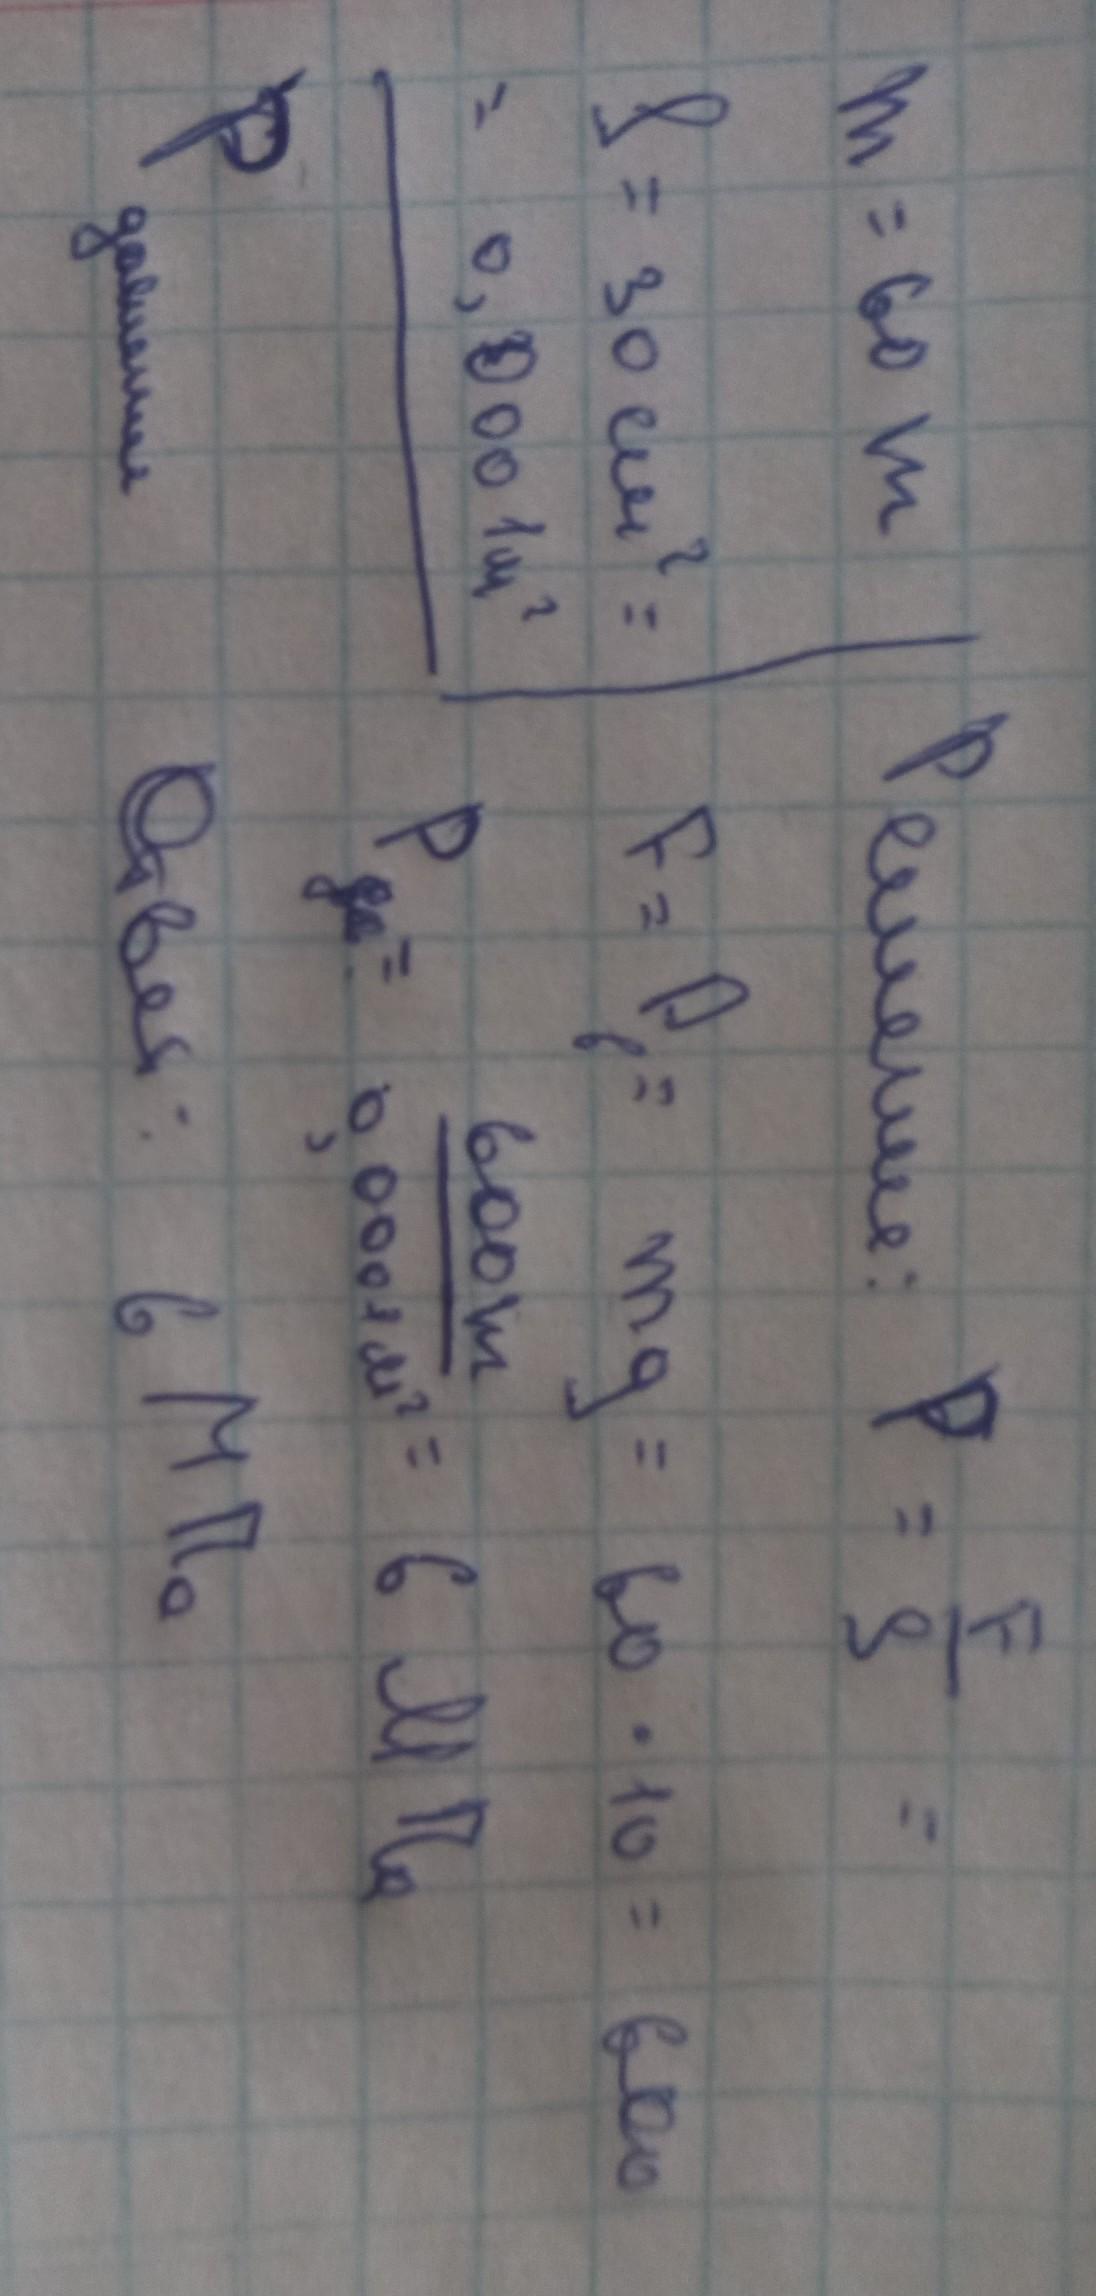 m = 60 m
S = 30 см² =
= 0,0001 м²
P давление
Решение: P = F/S =
F = P в = mg = 60 · 10 = 600
P да = 600 т / 0,0001 м² = 6 МПа
Ответ: 6 МПа